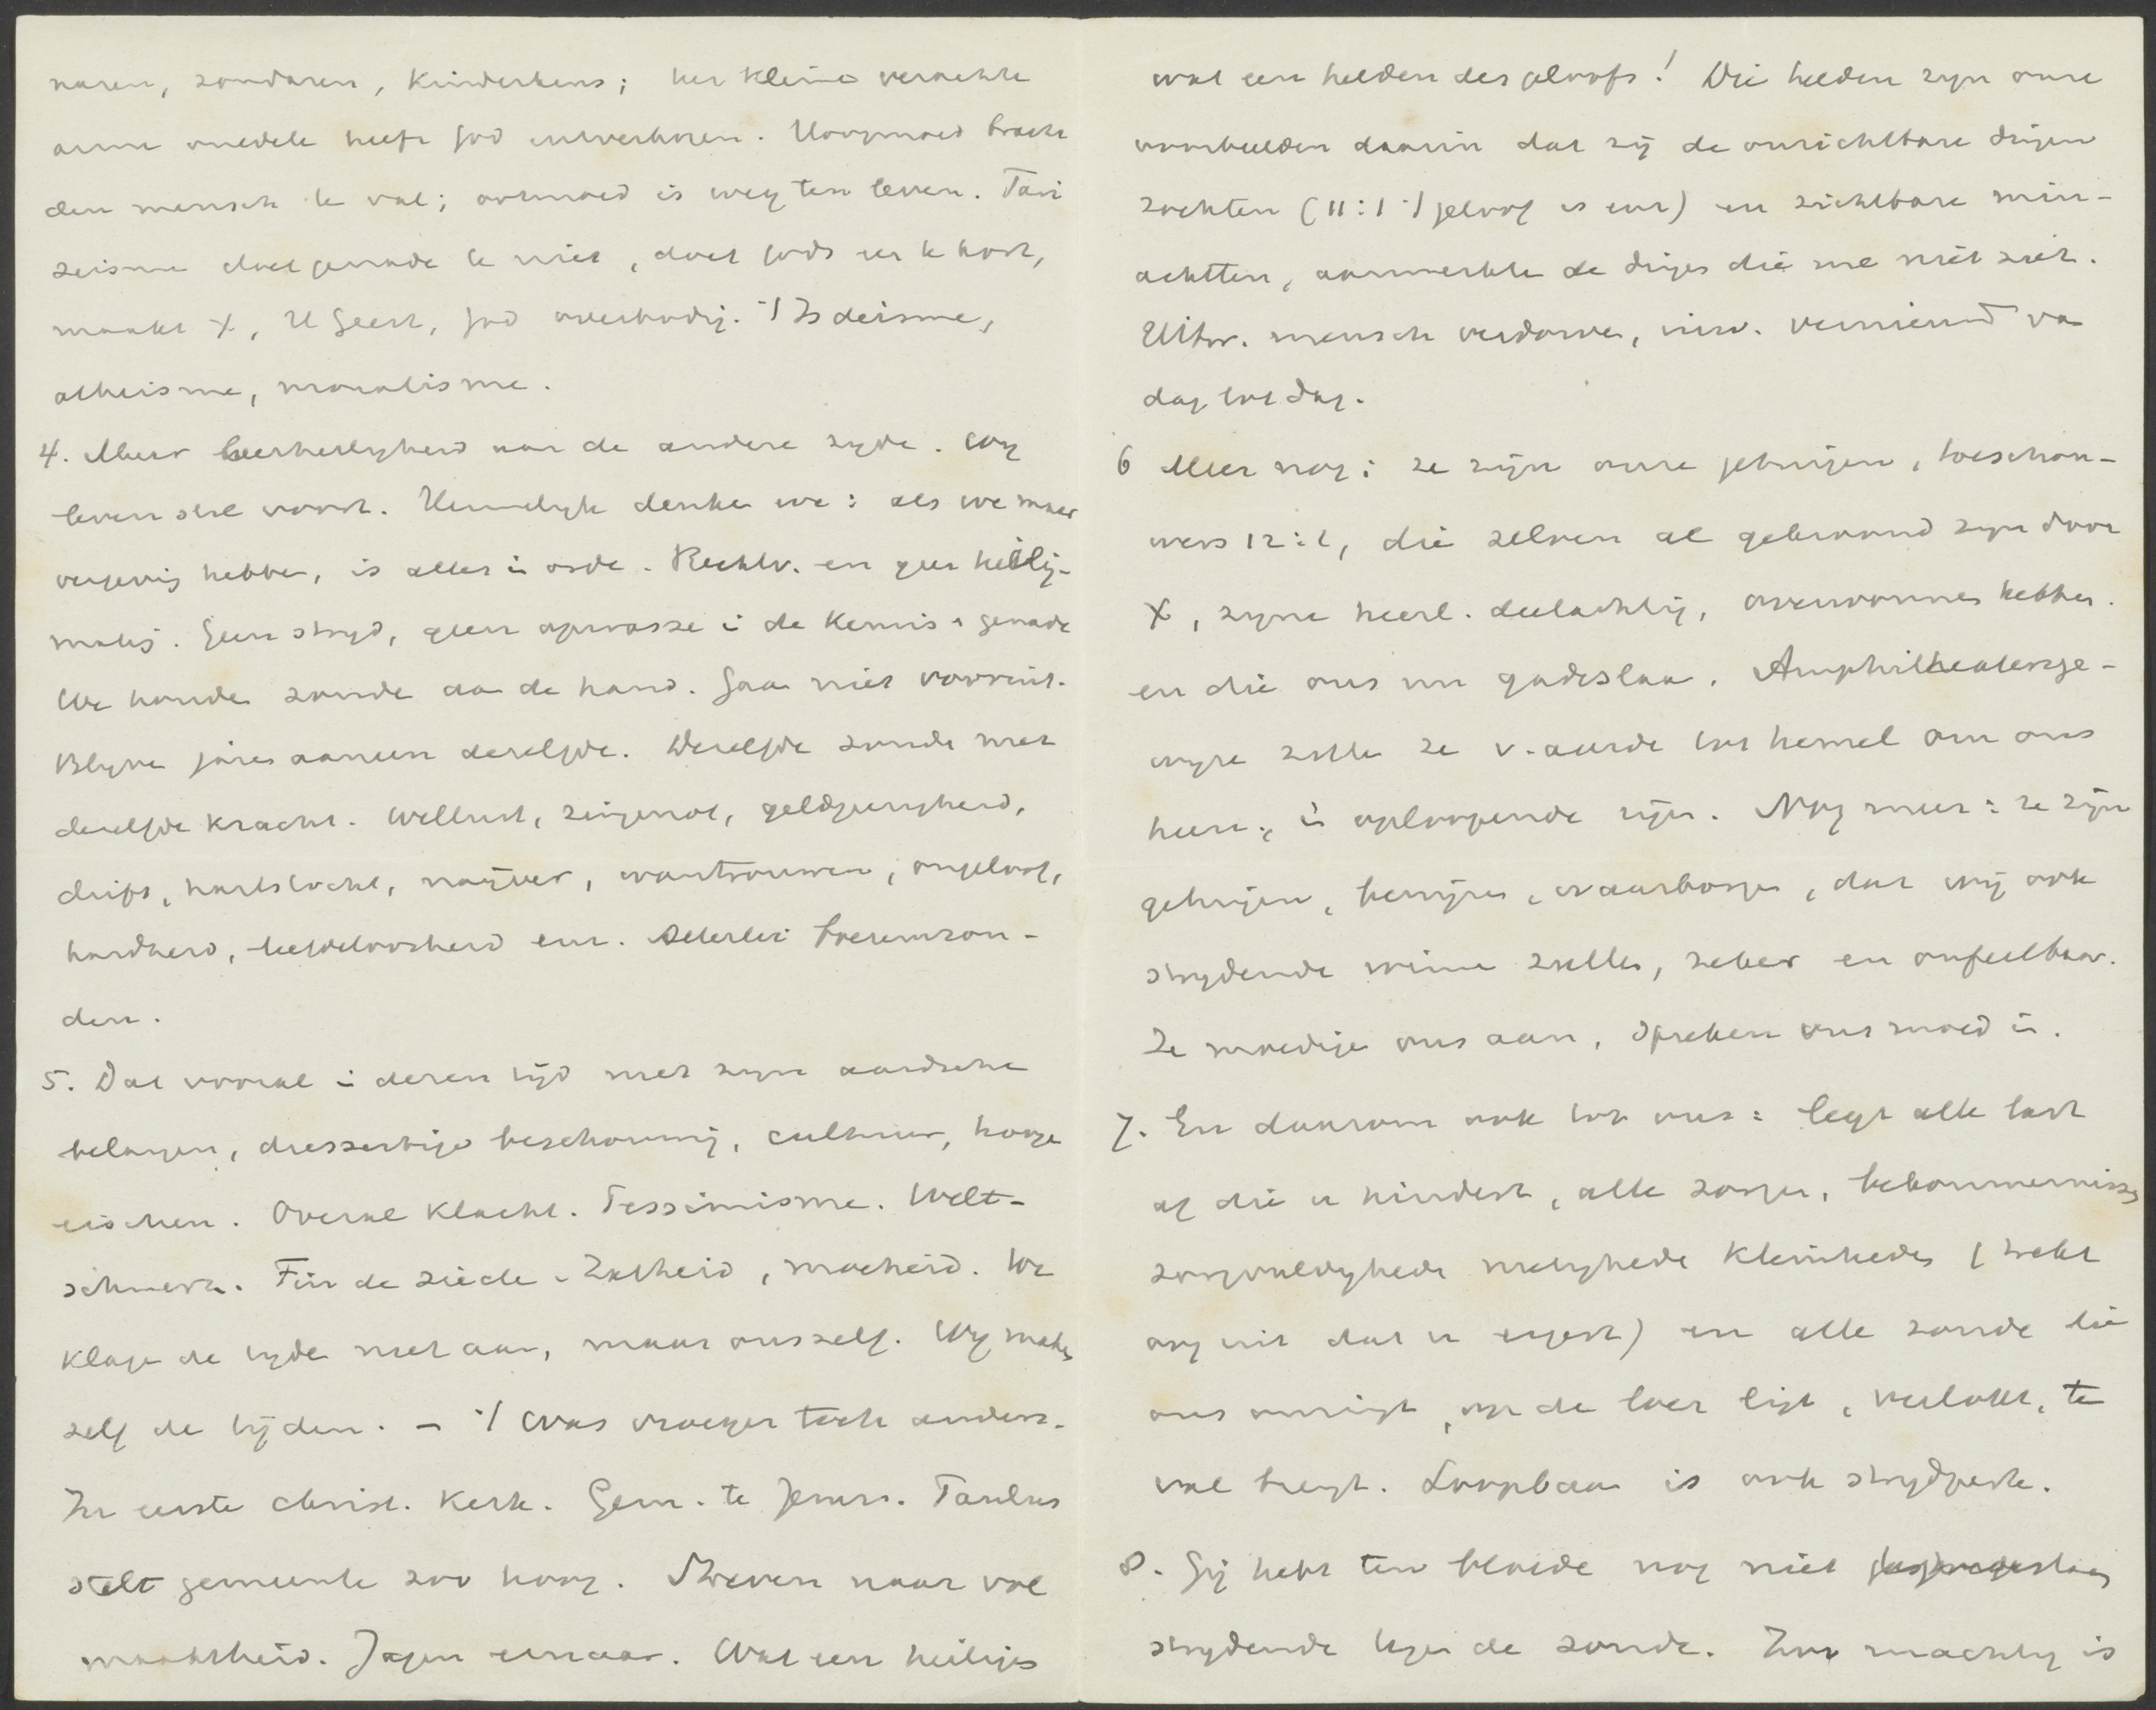 naren, zondaren, kinderkens; het kleine verachte
arme onedele heeft God uitverkoren. Hoogmoed bracht
den mensch te val; ootmoed is weg ten leven. Fari
zeisme doet genade te niet, doet Gods eer te kort,
maakt X, H Geest, God overbodig. ·/. Is deisme,
atheisme, moralisme.
4. Meer beerherlijkheid aan de andere zyde. Wy
leven stil voort. Heimelyk denke we: als we maar
vergevig hebbe, is alles i orde. Rechtv. en geen heilig-
makig. Geen stryd, geen opwasse i de kennis & genade
We houde zonde aa de hand. Gaa niet vooruit.
Blyve jare aaneen dezelfde. Dezelfde zonde met
dezelfde kracht. Wellust, zingenot, geldgierigheid,
drift, hartstocht, naijver, wantrouwen, ongeloof,
hardheid, liefdeloosheid enz. Allerlei boezemzon-
den.
5. Dat vooral i dezen tijd met zyn aardsche
belangen, diesseitige beschouwig, cultuur, hooge
eischen. Overal klacht. Pessimisme. Welt-
schmerz. Fin de siècle - Zatheid, moeheid. We
klage de tyde niet aan, maar onszelf. Wy make
zelf de tijden. - ·/. Was vroeger toch anders.
In eerste christ. kerk. Gem. te Jeruz. Paulus
stelt gemeente zoo hoog. Streven naar vol
maaktheid. Jagen ernaar. Wat een heilige
wat een helden des geloofs! Die helden zyn onze
voorbeelden daarin dat zij de onzichtbare dingen
zochten (11:1 ·/. geloof is enz) en zichtbare min-
achtten, aanmerkte de dinge die me niet ziet.
Uitw. mensch verdorve, inw. vernieuwd va
dag tot dag.
6 Meer nog: ze zijn onze getuigen, toeschou-
wers 12:1, die zelven al gekroond zyn door
X, zyne heerl. deelachtig, overwonnen hebben.
en die ons nu gadeslaa. Amphitheatersge-
wyze zitte ze v. aarde tot hemel om ons
heen, i oploopende rijen. Nog meer: ze zijn
getuigen, bewijze, waarborge, dat wij ook
strydende winne zulle, zeker en onfeilbaar.
Ze moedige ons aan, spreken ons moed i.
7. En daarom ook tot ons: legt alle last
af die u hindert, alle zorge, bekommernisse
zorgvuldighede nietighede kleinhede (trekt
oog uit dat u ergert) en alle zonde die
ons omrigt, op de loer ligt, verlokt, te
val brengt. Loopbaan is ook strydperk.
8. Gij hebt ten bloede nog niet
strydende tege de zonde. Zoo machtig is